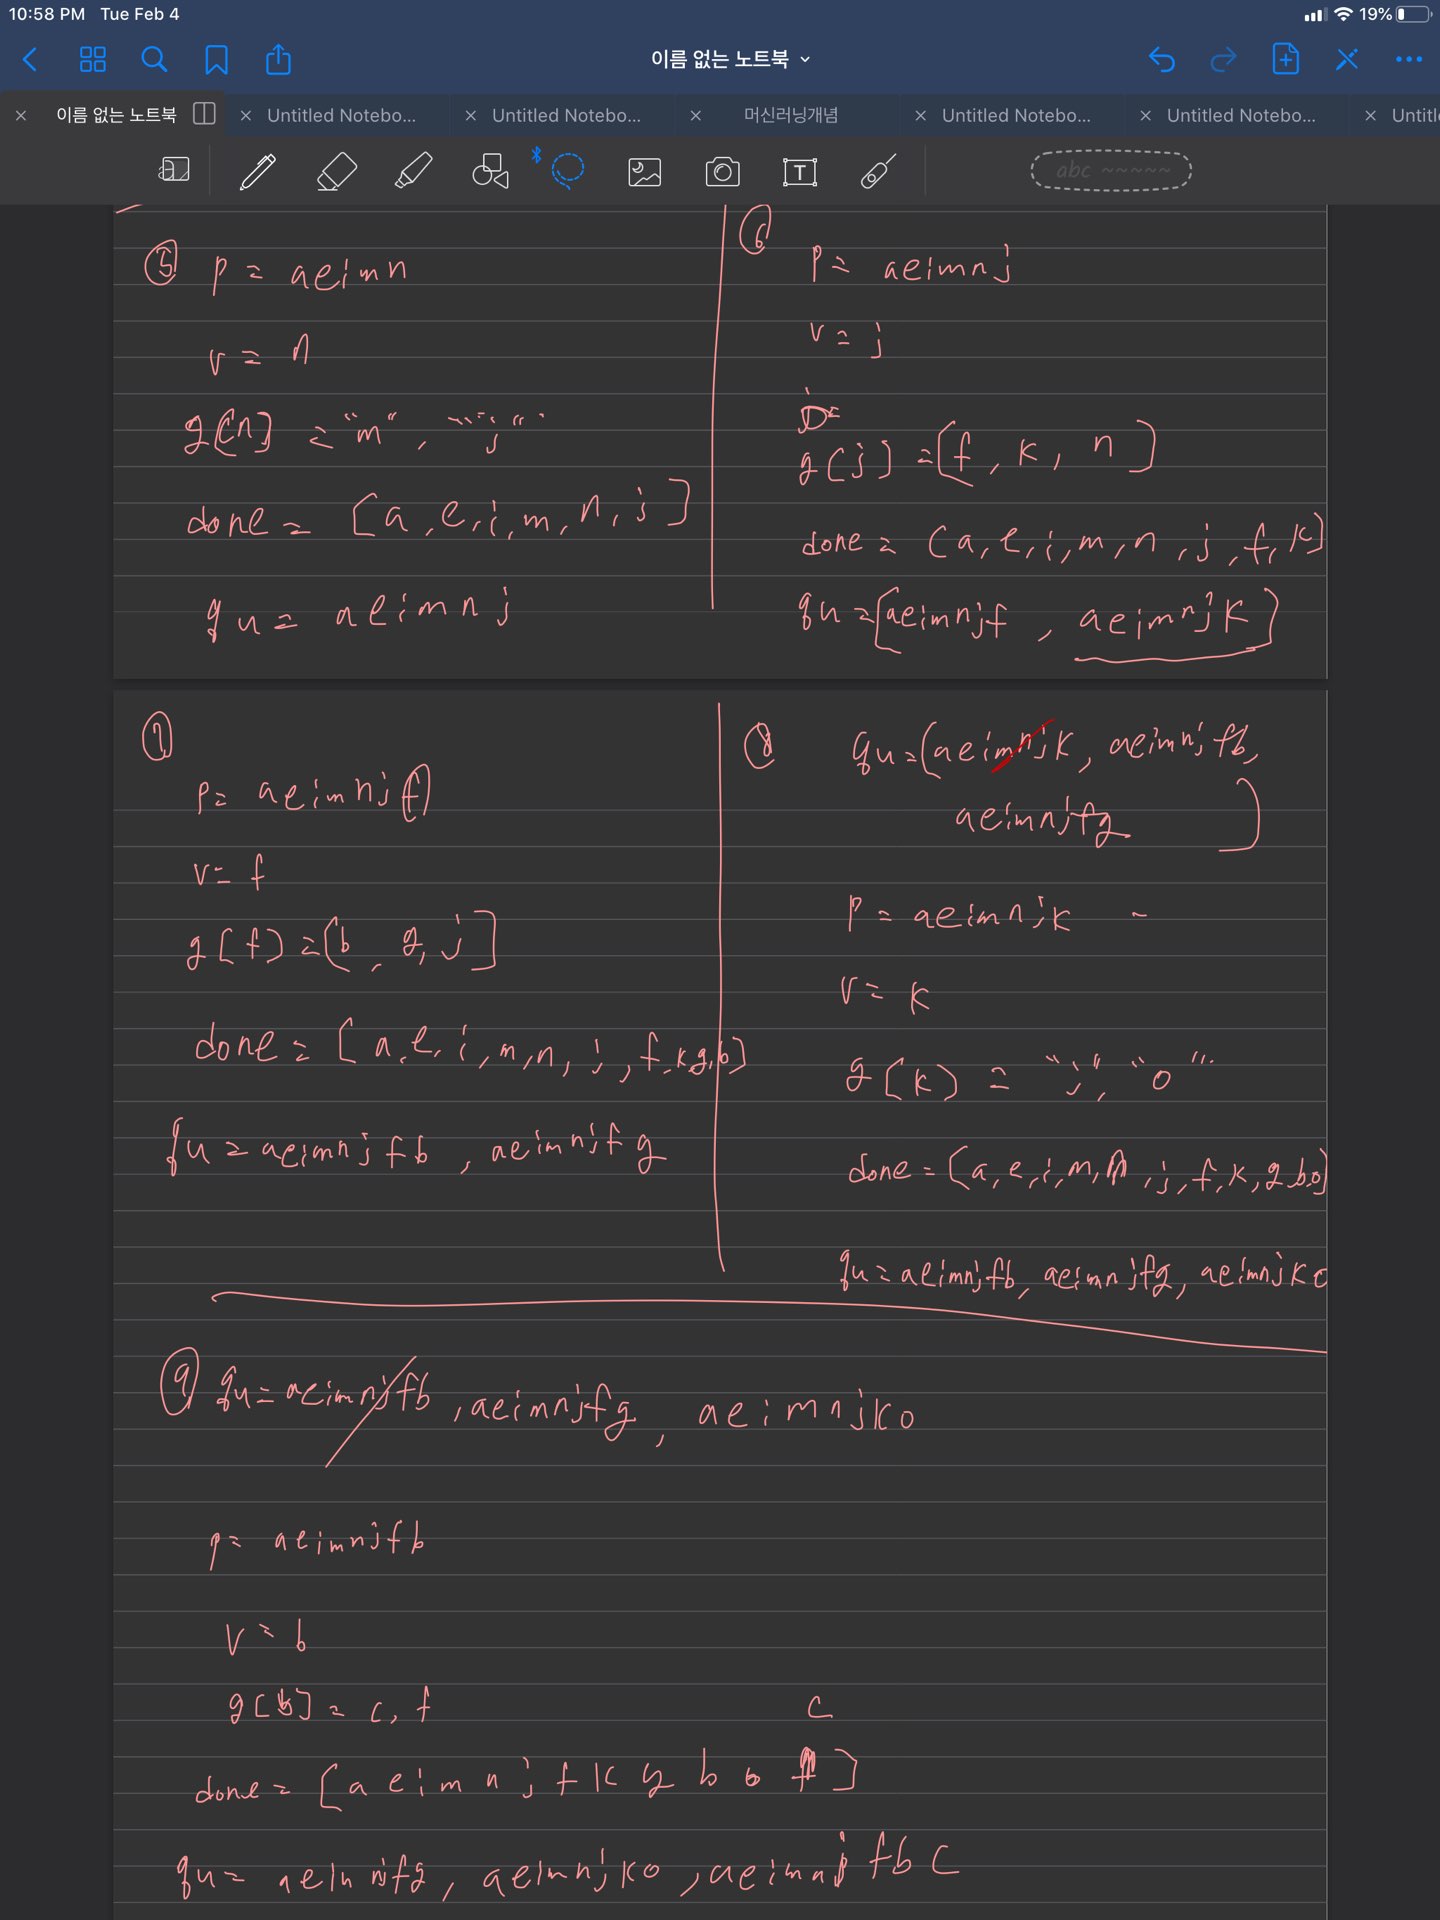 10:58 PM Tue Feb 4 19%
이름 없는 노트북
이름 없는 노트북 Untitled Notebo... Untitled Notebo... 머신러닝개념 Untitled Notebo... Untitled Notebo... Untitl
T abc
⑤ p = aeimn
v = n
g[n] = "m", "j"
done = [a, e, i, m, n, j]
qu = aeimnj
⑥
p = aeimnj
v = j
g[j] = [f, k, n]
done = [a, e, i, m, n, j, f, k]
qu = [aeimnjf, aeimnjk]
⑦
p = aeimnjf
v = f
g[f] = [b, g, j]
done = [a, e, i, m, n, j, f, k, g, b]
qu = aeimnjfb, aeimnjfg
⑧ qu = [aeimnjk, aeimnjfb,
aeimnjfg ]
p = aeimnjk -
v = k
g[k] = "j", "o"
done = [a, e, i, m, n, j, f, k, g, b, o]
qu = aeimnjfb, aeimnjfg, aeimnjko
⑨ qu = aeimnjfb, aeimnjfg, aeimnjko
p = aeimnjfb
v = b
g[b] = c, f
c
done = [a e i m n j f k g b o ]
qu = aeimnjfg, aeimnjko, aeimnj fbc